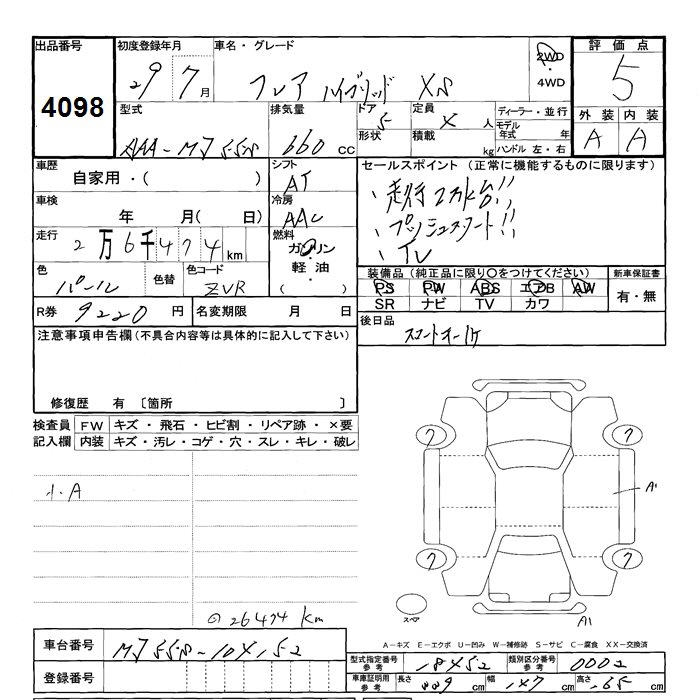 出品番号 初度登録年月 車名・グレード 評価点
4098 29 7月 フレア ハイブリッド XS 2WD ・ 4WD 5
型式 排気量 ドア形状 定員 積載 ディーラー・並行
AAA-MJ55S 660cc 5 人 kg モデル年式 年 ハンドル 左・右
外装 内装
A A
車歴 自家用・( ) シフト AT
セールスポイント(正常に機能するものに限ります)
、走行2万k台!!
、プッシュスタート!!
車検 年 月( 日) 冷房 AAC
走行 2万6千474km 燃料 ガソリン・軽油・( )
色 パール 色替 色コード ZVR
装備品(純正品に限り〇をつけてください) 新車保証書
PS PW ABS エアB AW 有・無
SR ナビ TV カワ
R券 9220円 名変期限 月 日
後日品
スマートキー1ケ
注意事項申告欄(不具合内容等は具体的に記入して下さい)
修復歴 有 〔箇所 〕
検査員 FW キズ・飛石・ヒビ割・リペア跡・×要
記入欄 内装 キズ・汚レ・コゲ・穴・スレ・キレ・破レ
小A
7 7
A1
7 7
スペア A1
26474km
A-キズ E-エクボ U-凹み W-補修跡 S-サビ C-腐食 XX-交換済
車台番号 MJ55S-10X152
型式指定番号参考 18X52 類別区分番号参考 0002
登録番号
車庫証明用参考 長さ 339 幅 147 高さ 165